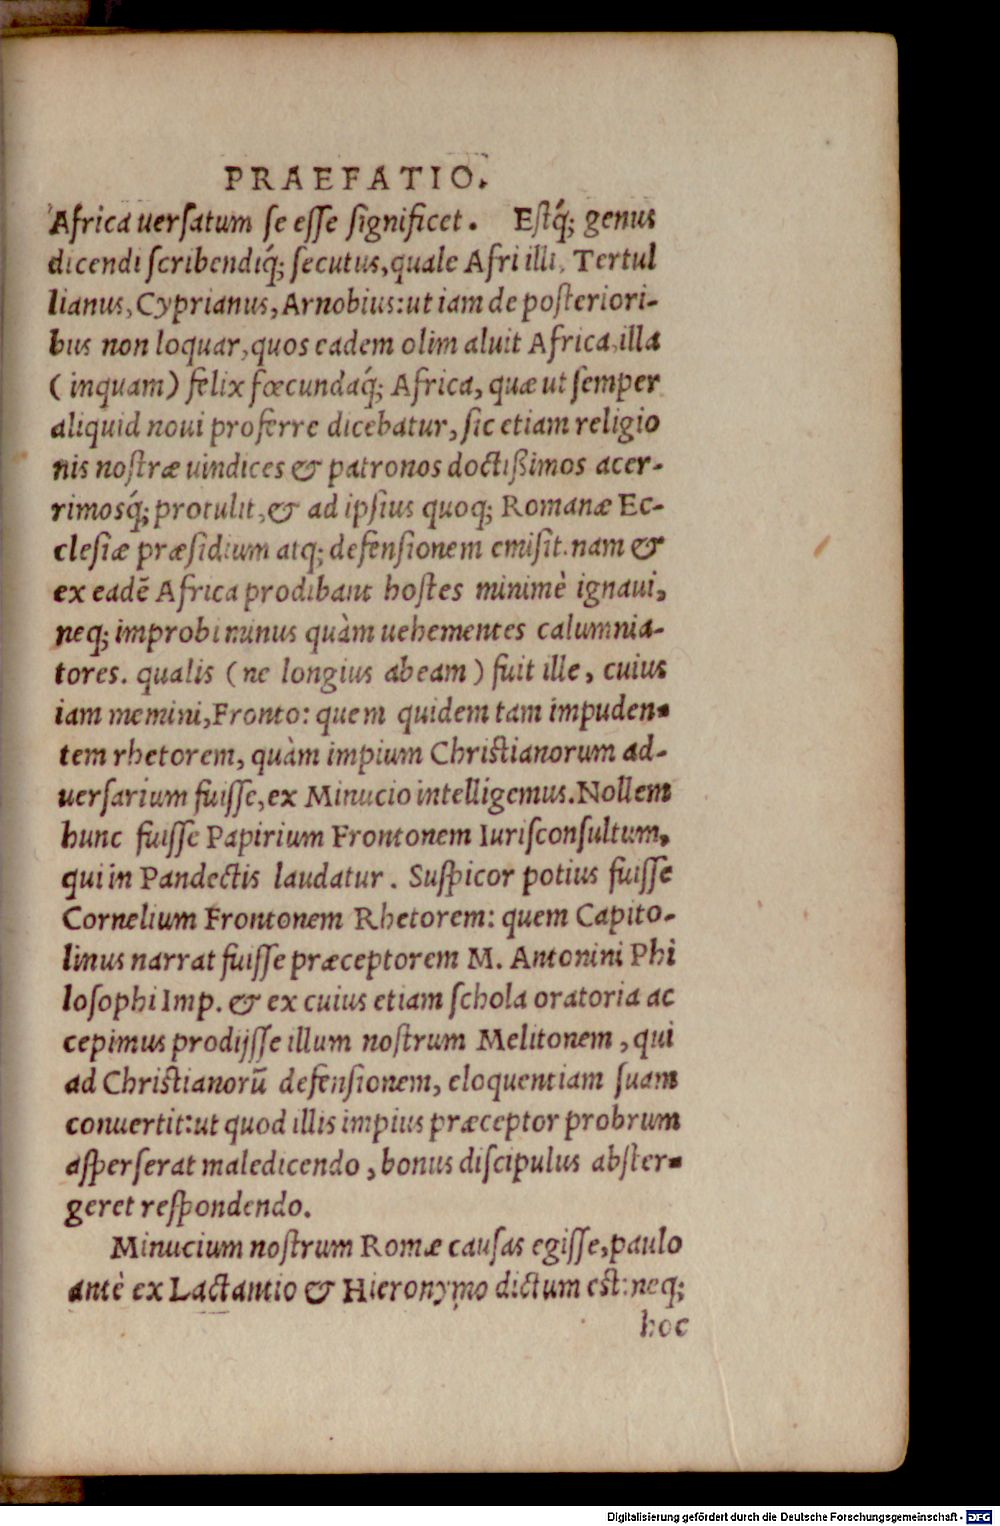 PRAEFATIO.
Africa uerſatum ſe eſſe ſignificet. Eſtq́; genus
dicendi ſcribendiq́; ſecutus, quale Afri illi, Tertul
lianus, Cyprianus, Arnobius: ut iam de poſteriori-
bus non loquar, quos eadem olim aluit Africa, illa
(inquam) felix fœcundaq́; Africa, quæ ut ſemper
aliquid noui proferre dicebatur, ſic etiam religio
nis noſtræ uindices & patronos doctißimos acer-
rimosq́; protulit, & ad ipſius quoq; Romanæ Ec-
cleſiæ præſidium atq; defenſionem emiſit. nam &
ex eadē Africa prodibant hoſtes minimè ignaui,
neq; improbi minus quàm uehementes calumnia-
tores. qualis (ne longius abeam) fuit ille, cuius
iam memini, Fronto: quem quidem tam impuden-
tem rhetorem, quàm impium Chriſtianorum ad-
uerſarium fuiſſe, ex Minucio intelligemus. Nollem
hunc fuiſſe Papirium Frontonem Iuriſconſultum,
qui in Pandectis laudatur. Suſpicor potius fuiſſe
Cornelium Frontonem Rhetorem: quem Capito-
linus narrat fuiſſe præceptorem M. Antonini Phi
loſophi Imp. & ex cuius etiam ſchola oratoria ac
cepimus prodijſſe illum noſtrum Melitonem, qui
ad Chriſtianorū defenſionem, eloquentiam ſuam
conuertit: ut quod illis impius præceptor probrum
aſperſerat maledicendo, bonus diſcipulus abſter-
geret reſpondendo.
Minucium noſtrum Romæ cauſas egiſſe, paulo
antè ex Lactantio & Hieronymo dictum eſt: neq;
hoc
Digitalisierung gefördert durch die Deutsche Forschungsgemeinschaft - DFG